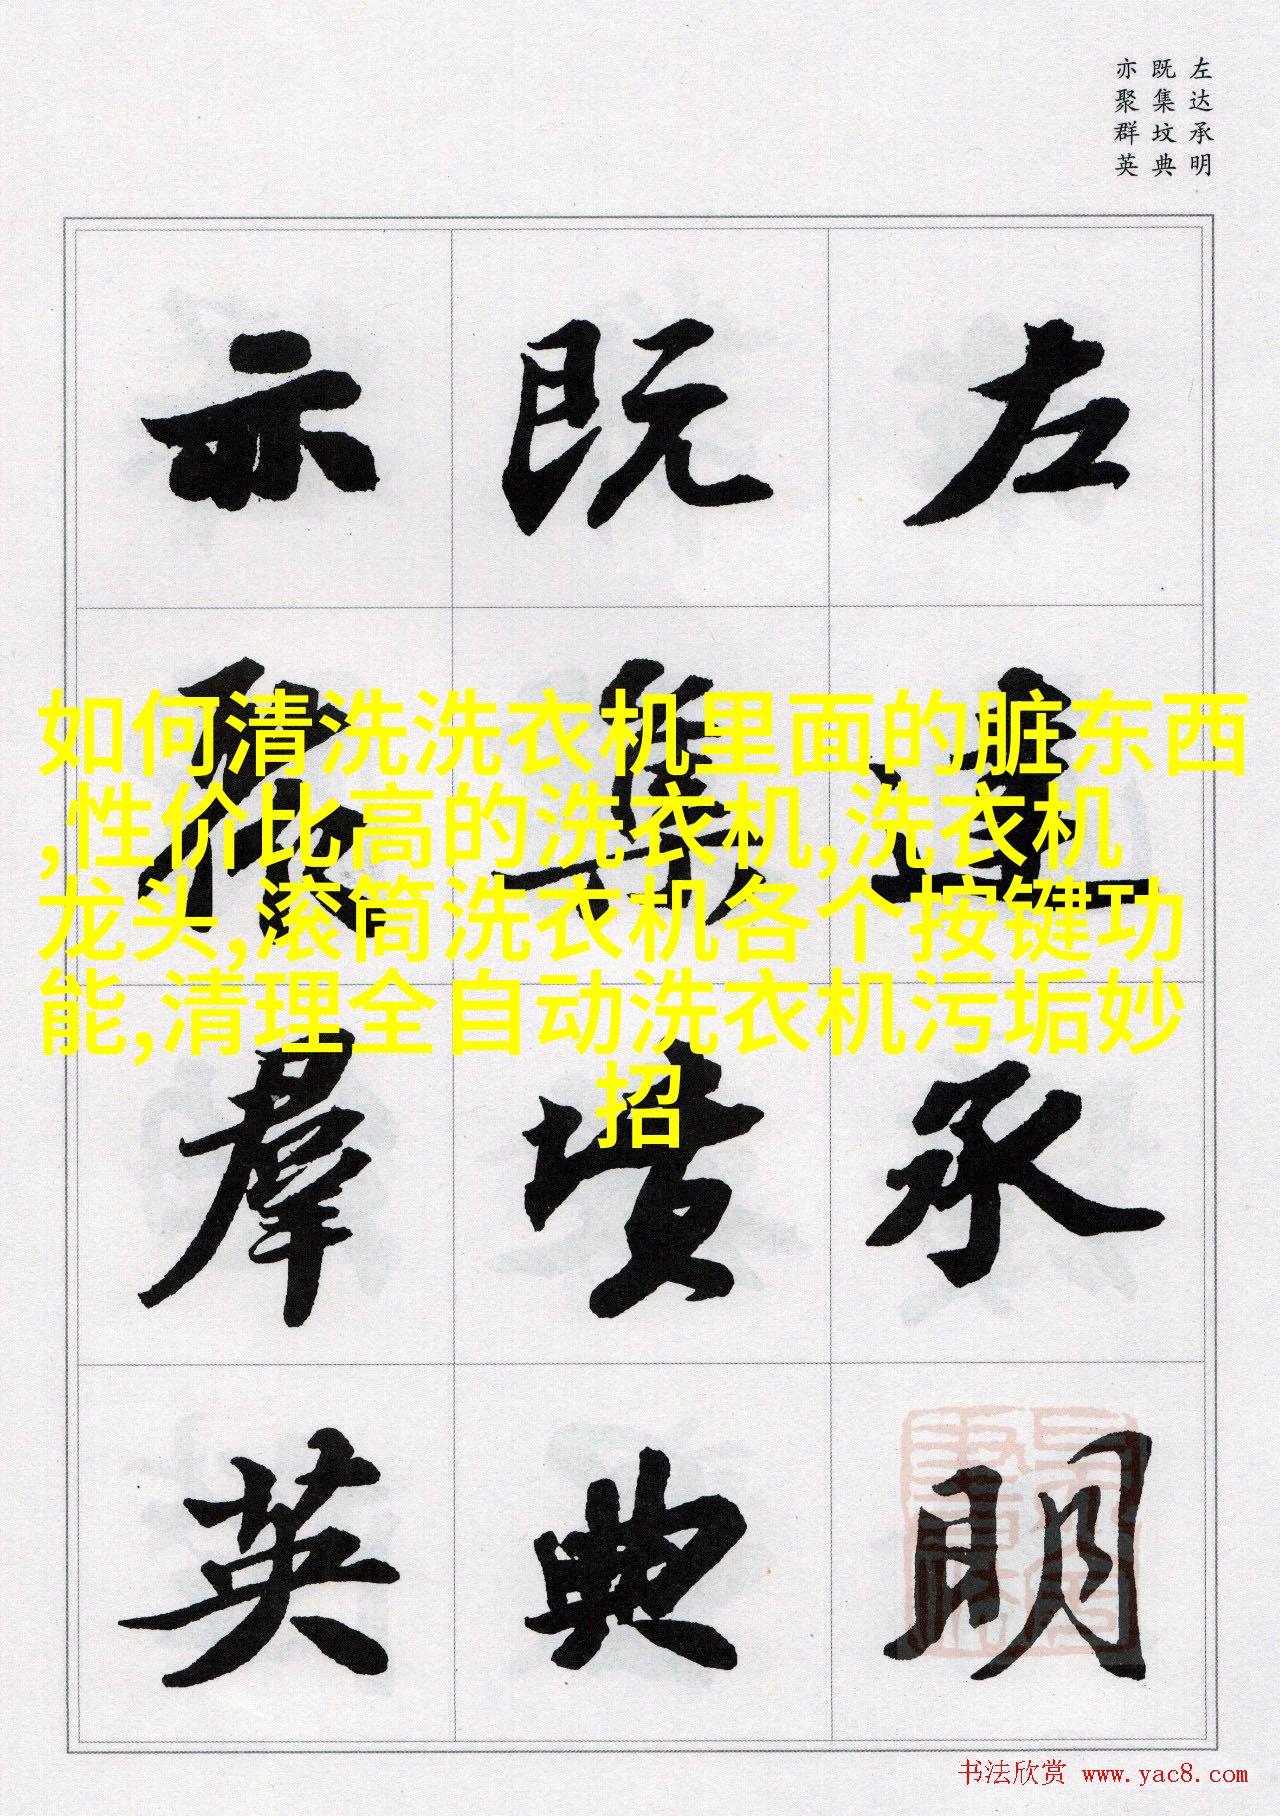 左达承明
既集坟典
亦聚群英
左達承明
既集墳典
亦聚群英
如何清洗洗衣机里面的脏东西
,性价比高的洗衣机,洗衣机
龙头,滚筒洗衣机各个按键功
能,清理全自动洗衣机污垢妙
招
书法欣赏 www.yac8.com